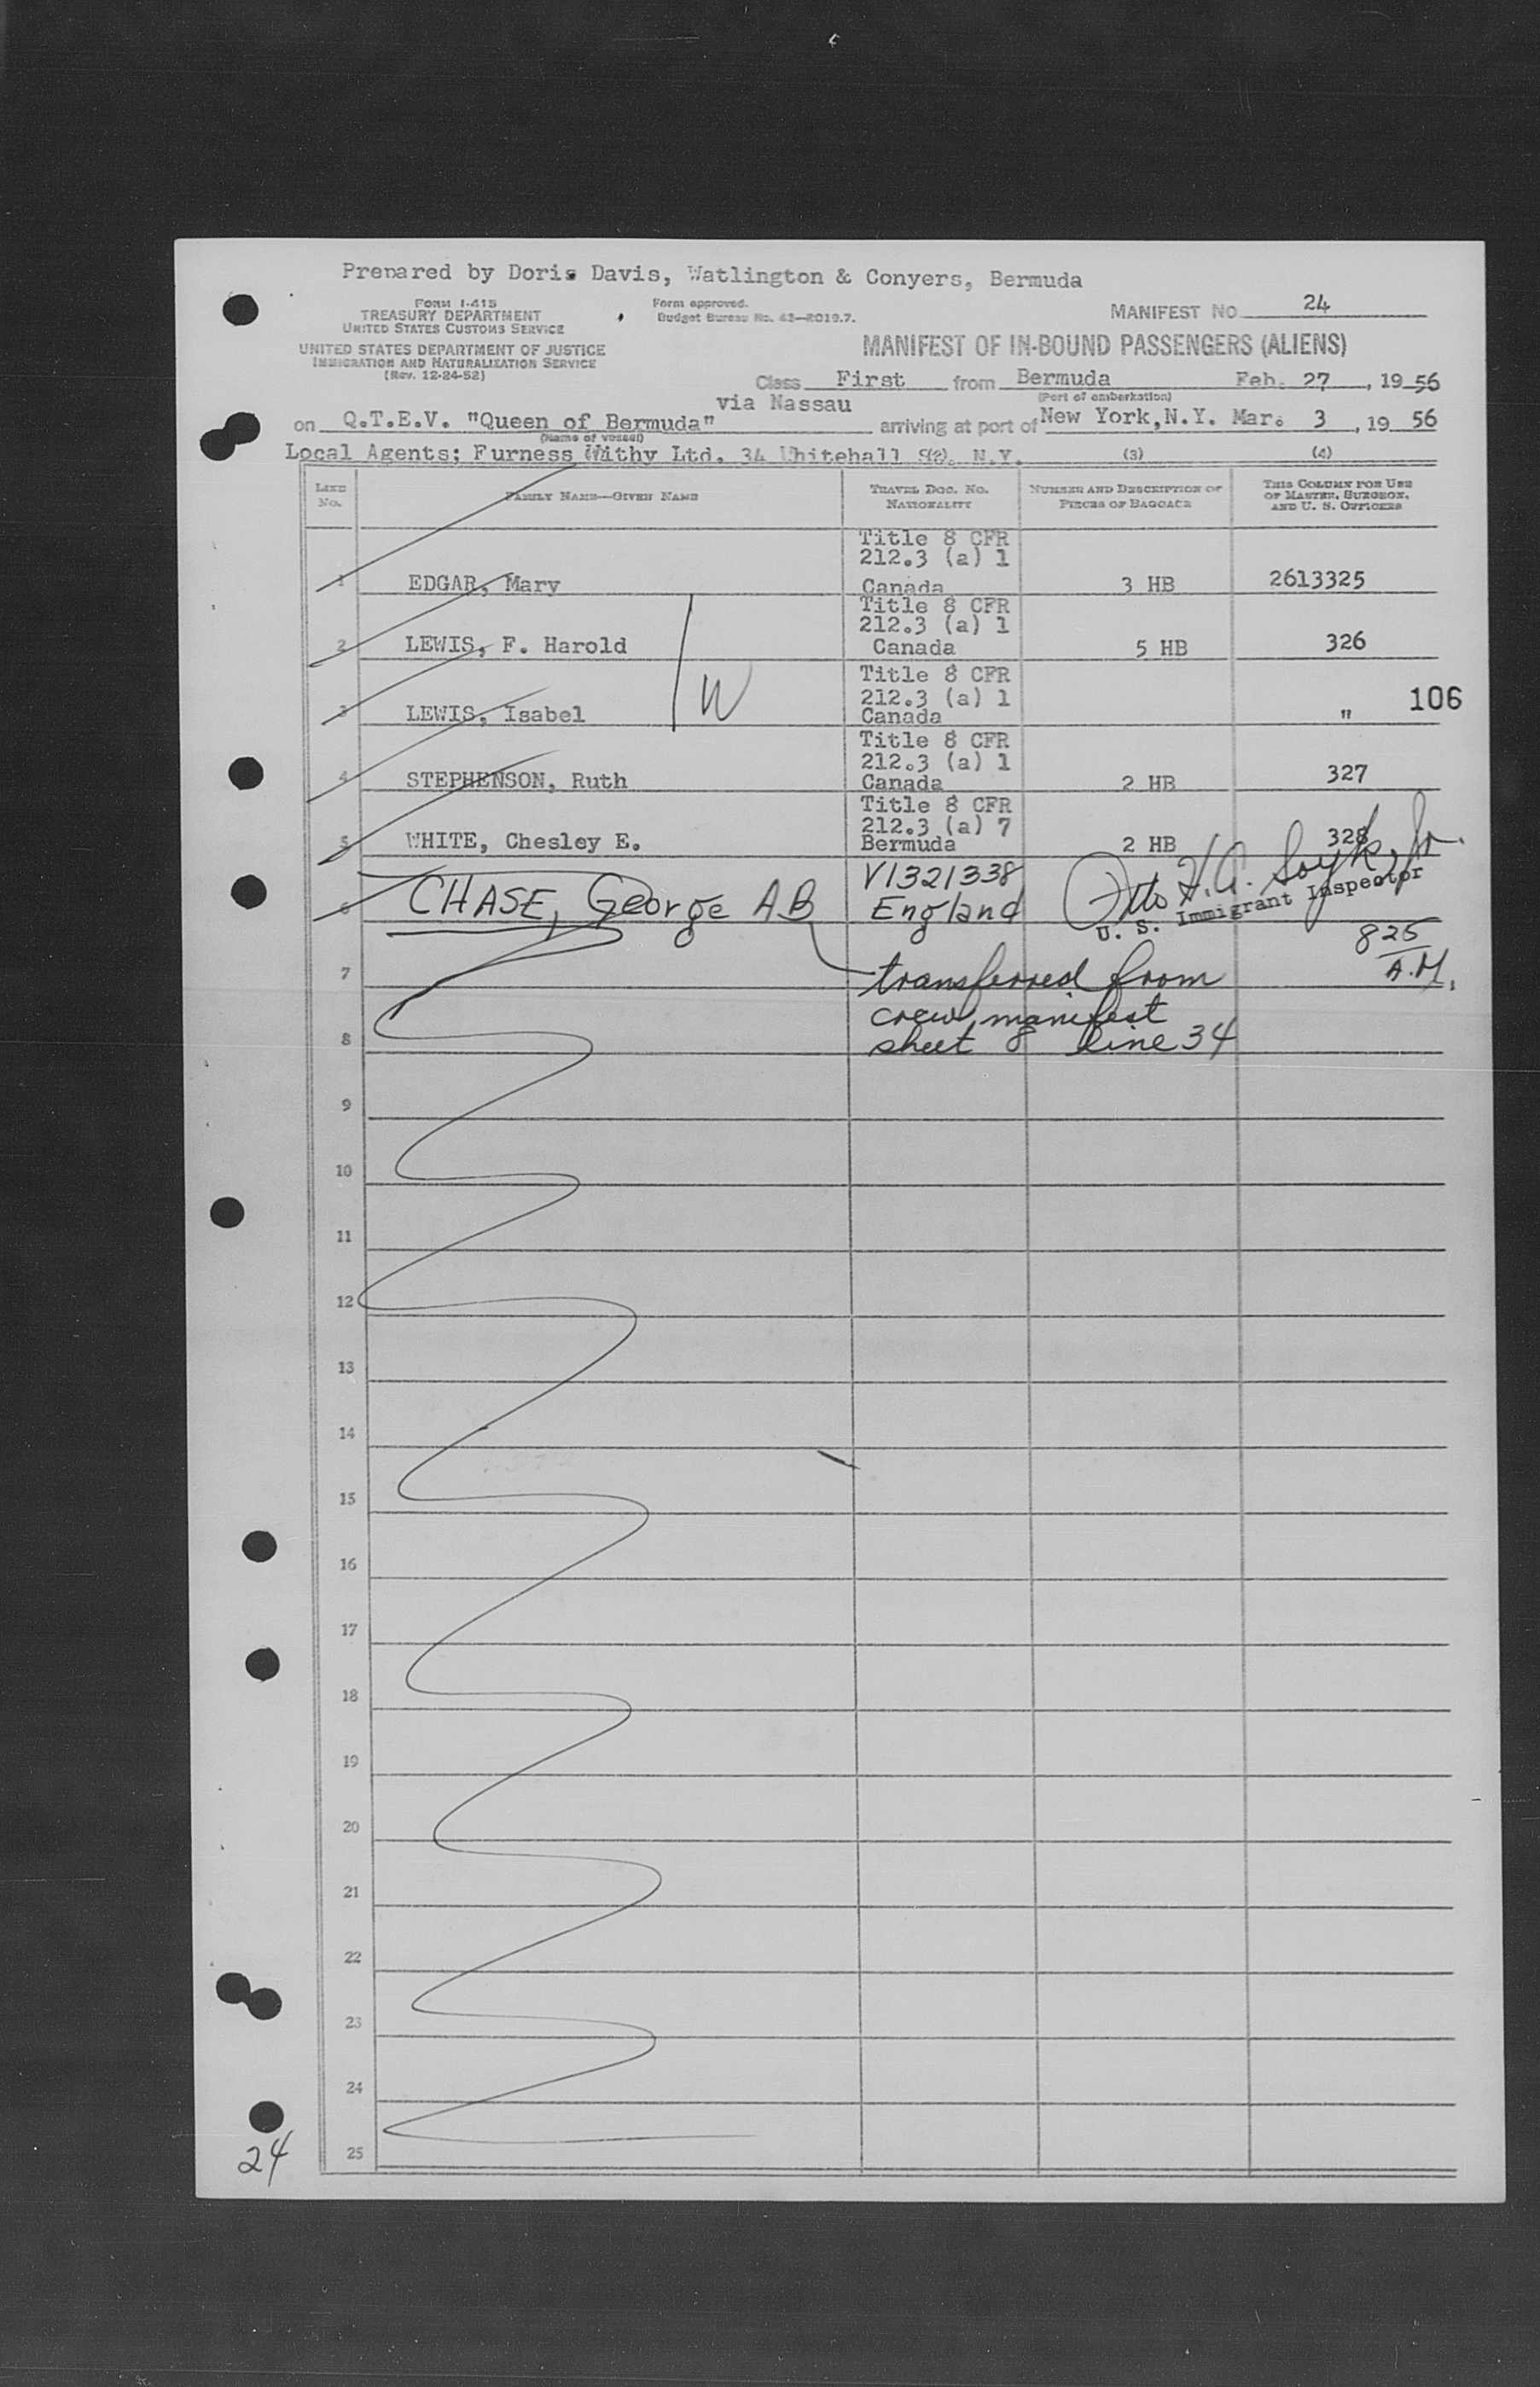 Prepared by Doris Davis, Watlington & Conyers, Bermuda
FORM I-415
TREASURY DEPARTMENT
UNITED STATES CUSTOMS SERVICE
Form approved.
Budget Bureau No. 43—R019.7.
MANIFEST NO 24
UNITED STATES DEPARTMENT OF JUSTICE
IMMIGRATION AND NATURALIZATION SERVICE
(Rev. 12-24-52)
MANIFEST OF IN-BOUND PASSENGERS (ALIENS)
Class First from Bermuda Feb. 27, 1956
via Nassau (Port of embarkation)
on Q.T.E.V. "Queen of Bermuda" arriving at port of New York, N.Y. Mar. 3, 1956
(Name of vessel)
Local Agents; Furness Withy Ltd. 34 Whitehall St. N.Y. (3) (4)
LINE No. FAMILY NAME—GIVEN NAME TRAVEL DOC. NO. NATIONALITY NUMBER AND DESCRIPTION OF PIECES OF BAGGAGE THIS COLUMN FOR USE OF MASTER, SURGEON, AND U. S. OFFICERS
Title 8 CFR
212.3 (a) 1
1 EDGAR, Mary Canada 3 HB 2613325
Title 8 CFR
212.3 (a) 1
2 LEWIS, F. Harold Canada 5 HB 326
W
Title 8 CFR
212.3 (a) 1 106
3 LEWIS, Isabel Canada "
Title 8 CFR
212.3 (a) 1
4 STEPHENSON, Ruth Canada 2 HB 327
Title 8 CFR
212.3 (a) 7
5 WHITE, Chesley E. Bermuda 2 HB 328
V1321338
6 CHASE, George AB England
U. S. Immigrant Inspector
825
A.M.
7 transferred from
crew manifest
8 sheet 8 line 34
9
10
11
12
13
14
15
16
17
18
19
20
21
22
23
24
25
24